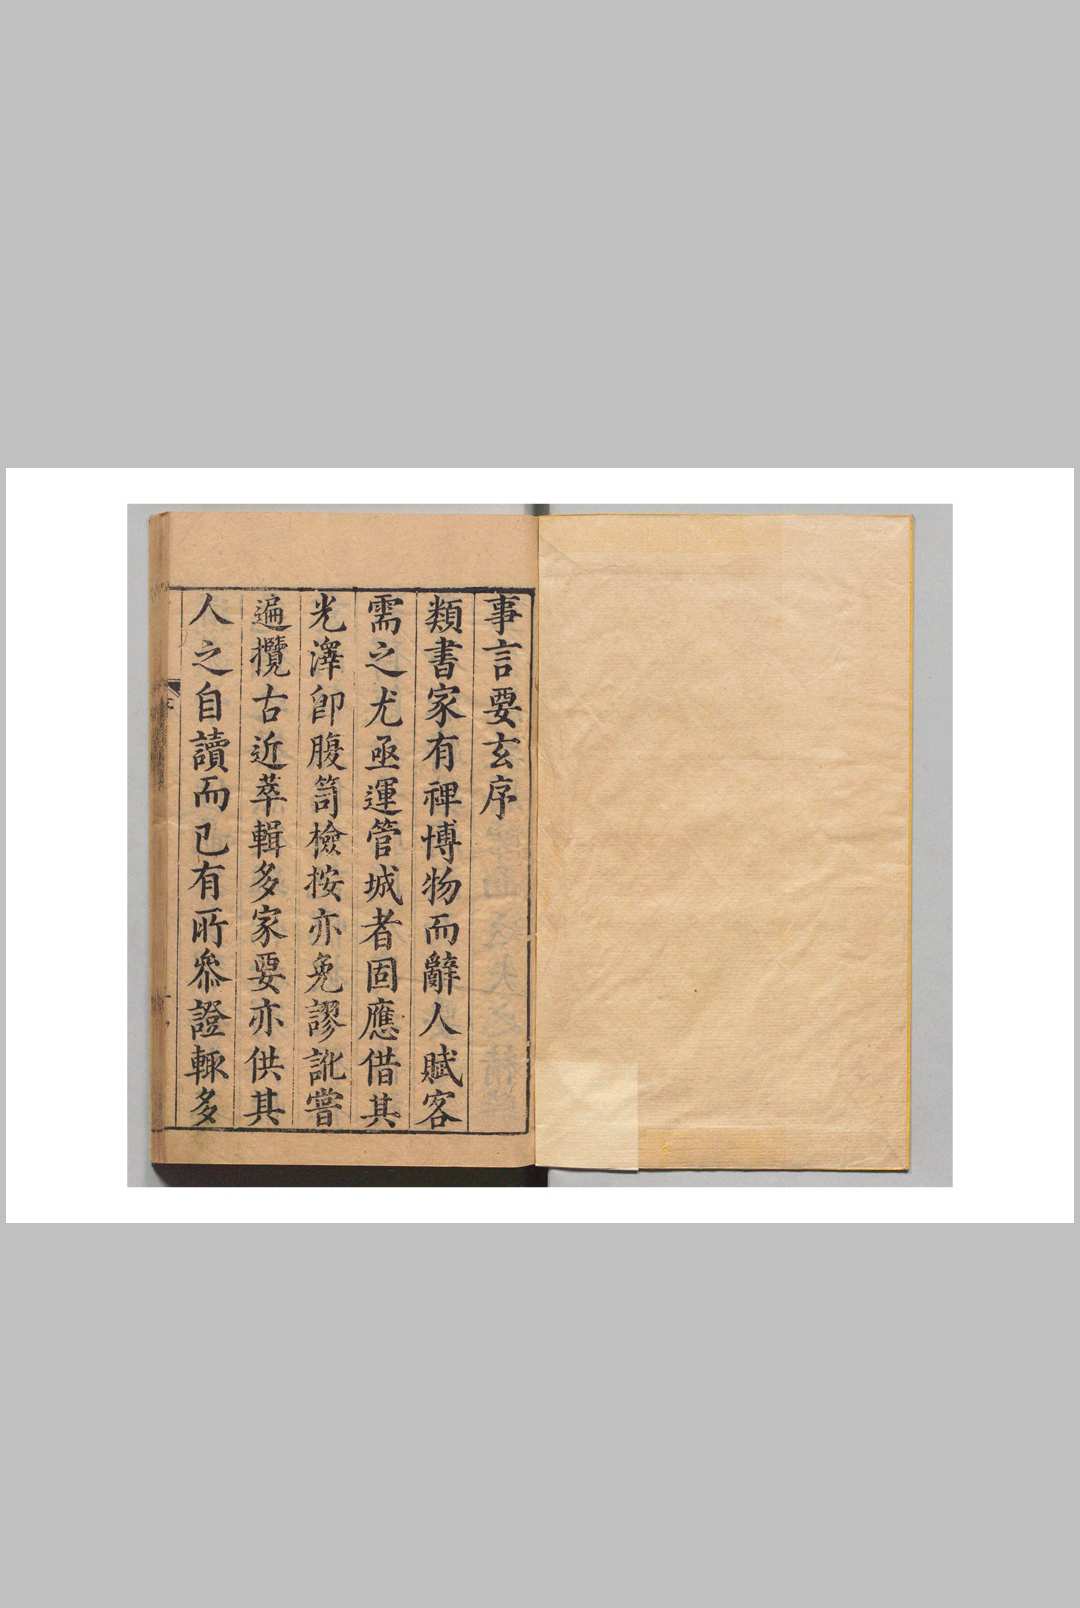 事言要玄序
類書家有裨博物而辭人賦客
需之尤亟運管城者固應借其
光澤卽腹笥檢按亦免謬訛嘗
遍攬古近萃輯多家要亦供其
人之自讀而已有所叅證輒多